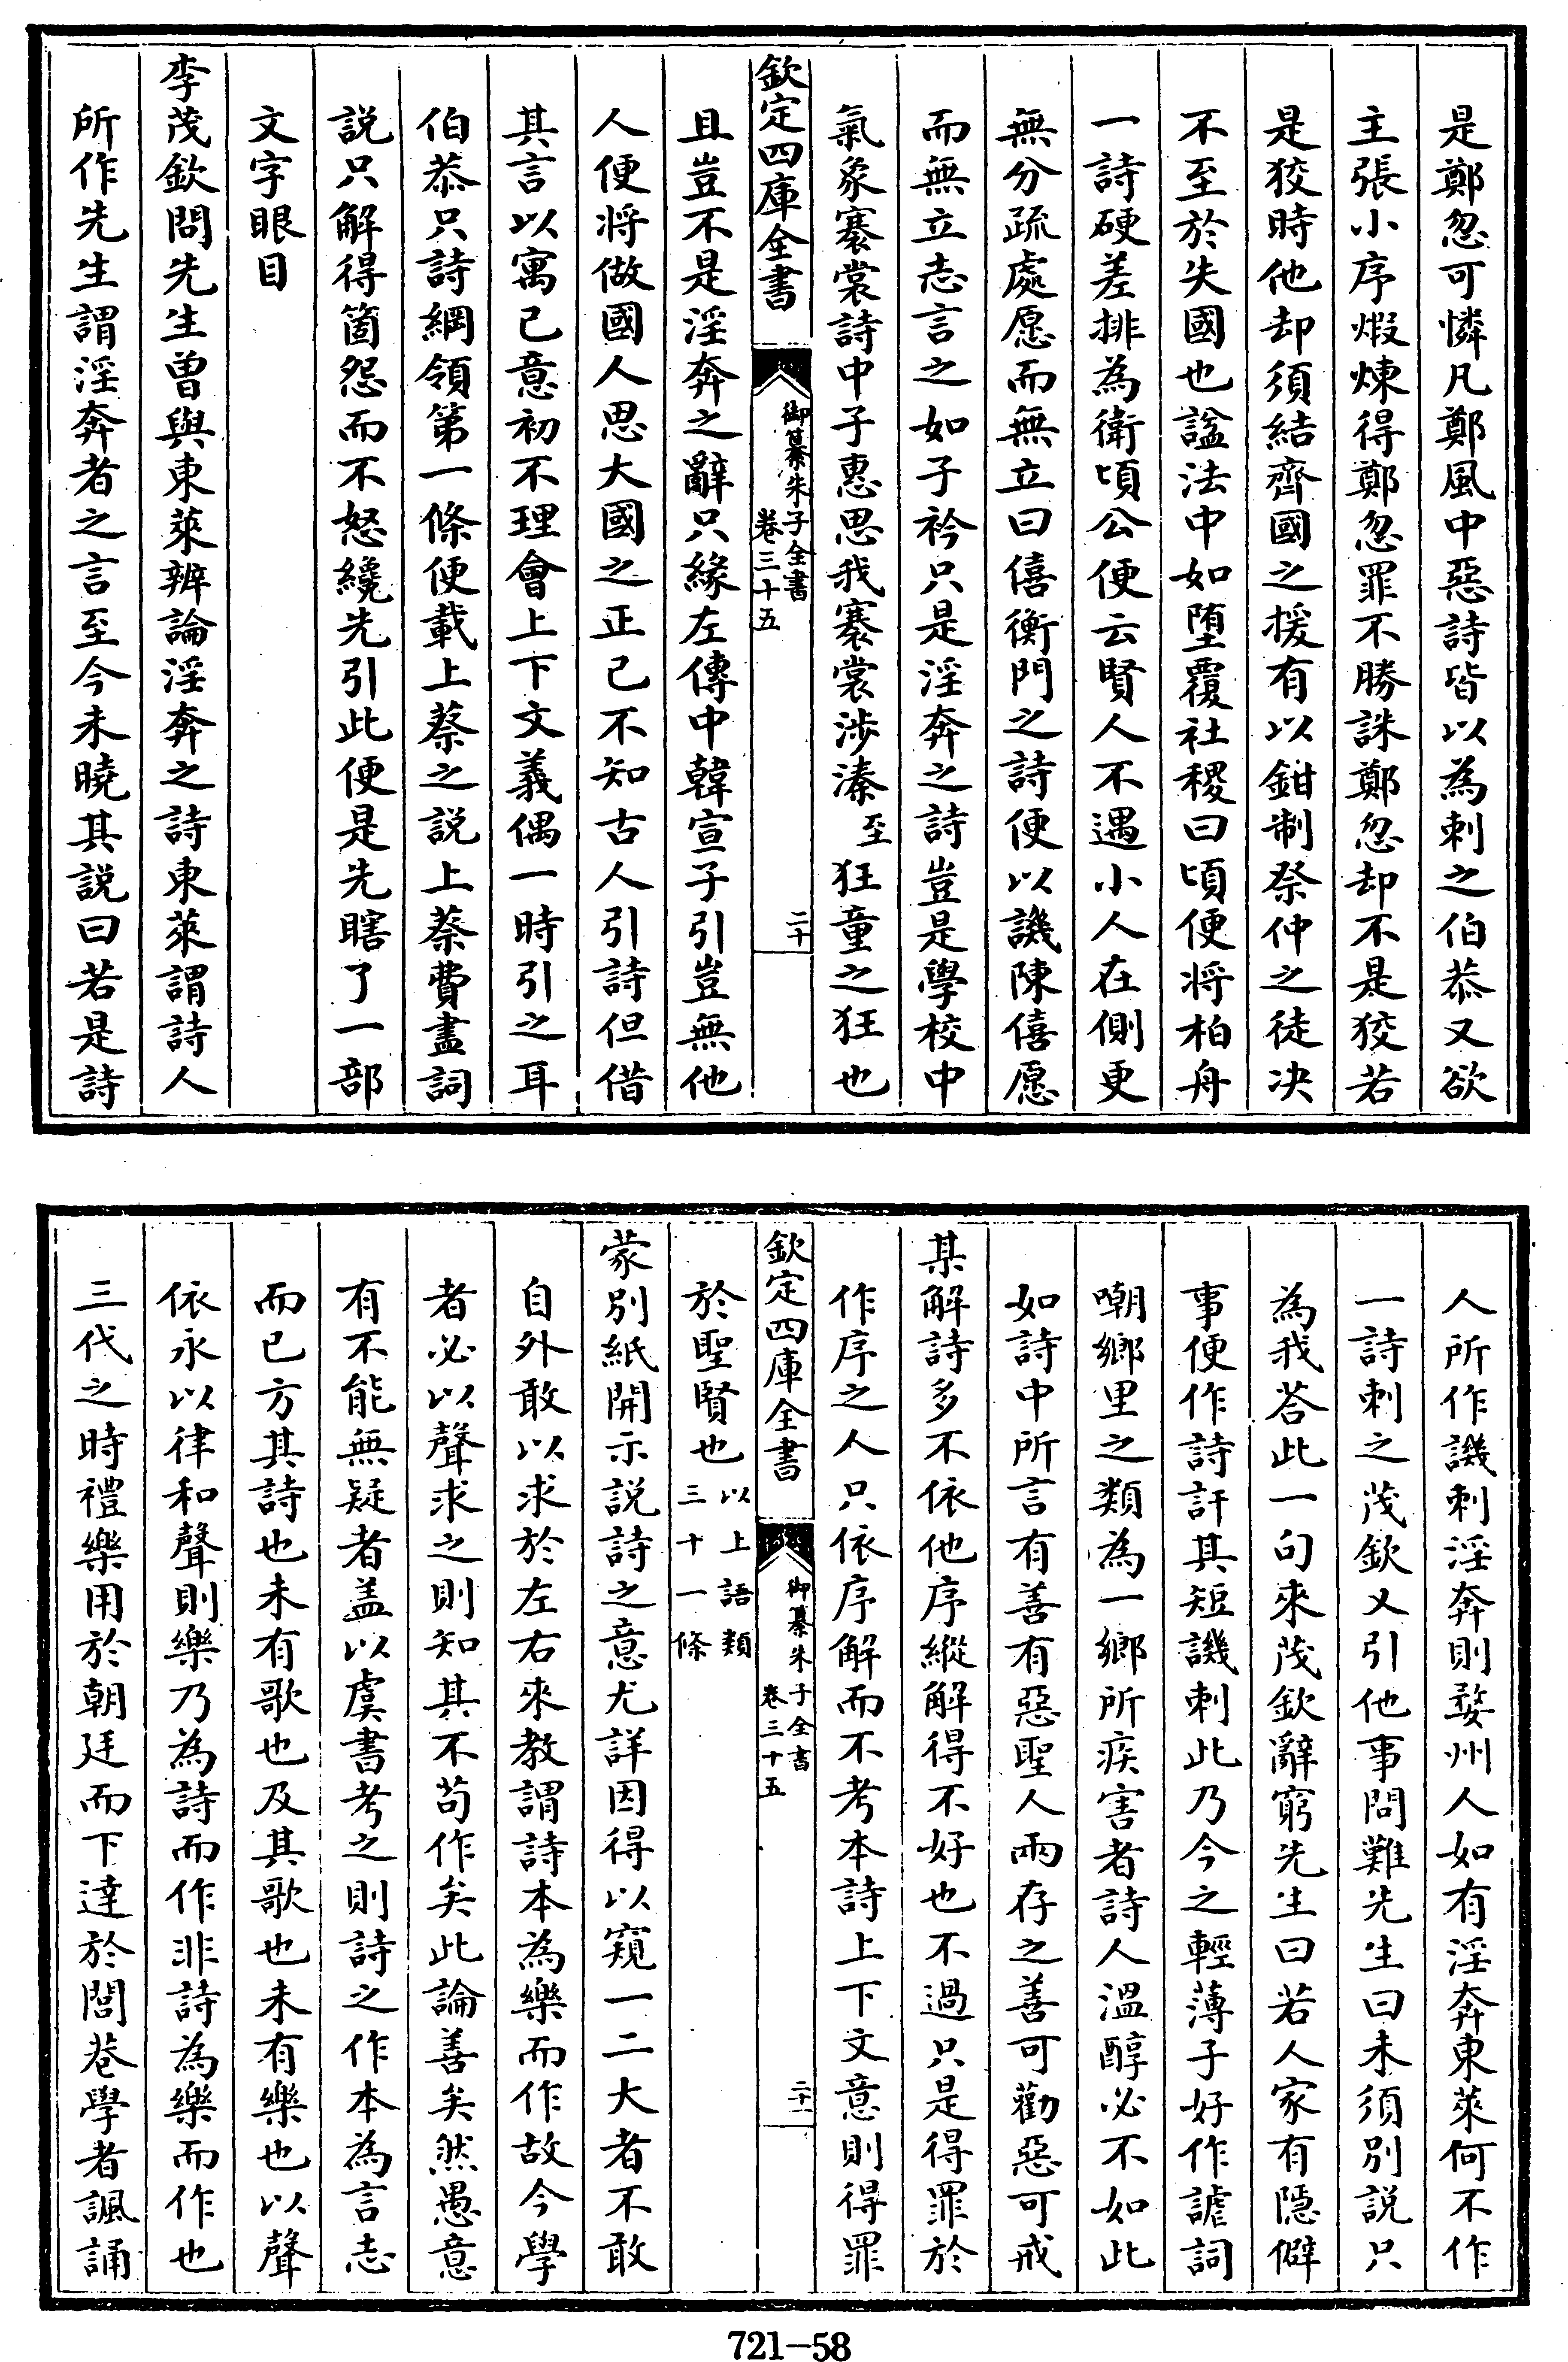 是鄭忽可憐凡鄭風中惡詩皆以為刺之伯恭又欲
主張小序煆煉得鄭忽罪不勝誅鄭忽却不是狡若
是狡時他却須結齊國之援有以鉗制祭仲之徒决
不至於失國也諡法中如墮覆社稷曰頃便將柏舟
一詩硬差排為衛頃公便云賢人不遇小人在側更
無分疏處愿而無立曰僖衡門之詩便以譏陳僖愿
而無立志言之如子衿只是淫奔之詩豈是學校中
氣象褰裳詩中子惠思我褰裳涉溱至狂童之狂也
欽定四庫全書
御纂朱子全書
卷三十五
二十
且豈不是淫奔之辭只緣左傳中韓宣子引豈無他
人便將做國人思大國之正已不知古人引詩但借
其言以寓己意初不理會上下文義偶一時引之耳
伯恭只詩綱領第一條便載上蔡之説上蔡費盡詞
説只解得箇怨而不怒纔先引此便是先瞎了一部
文字眼目
李茂欽問先生曾與東萊辨論淫奔之詩東萊謂詩人
所作先生謂淫奔者之言至今未曉其説曰若是詩
人所作譏刺淫奔則婺州人如有淫奔東萊何不作
一詩刺之茂欽又引他事問難先生曰未須別説只
為我荅此一句來茂欽辭窮先生曰若人家有隱僻
事便作詩訐其短譏刺此乃今之輕薄子好作謔詞
嘲鄉里之類為一鄉所疾害者詩人溫醇必不如此
如詩中所言有善有惡聖人兩存之善可勸惡可戒
某解詩多不依他序縱解得不好也不過只是得罪於
作序之人只依序解而不考本詩上下文意則得罪
欽定四庫全書
御纂朱子全書
卷三十五
二十一
於聖賢也以上語類
三十一條
蒙別紙開示説詩之意尤詳因得以窺一二大者不敢
自外敢以求於左右來教謂詩本為樂而作故今學
者必以聲求之則知其不苟作矣此論善矣然愚意
有不能無疑者盖以虞書考之則詩之作本為言志
而已方其詩也未有歌也及其歌也未有樂也以聲
依永以律和聲則樂乃為詩而作非詩為樂而作也
三代之時禮樂用於朝廷而下達於閭巷學者諷誦
721-58